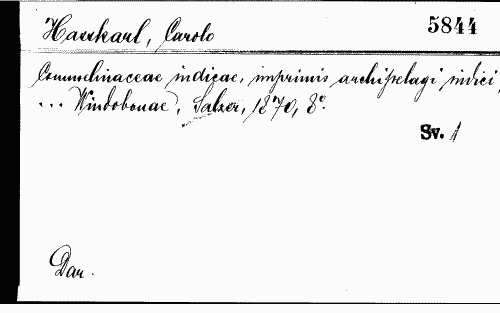 Hasskarl, Carolo 5844
Commelinaceae indicae, imprimis archipelagi indici,
... Windobonae, Salzer, 1870, 8°.
Sv. 1
Dar.